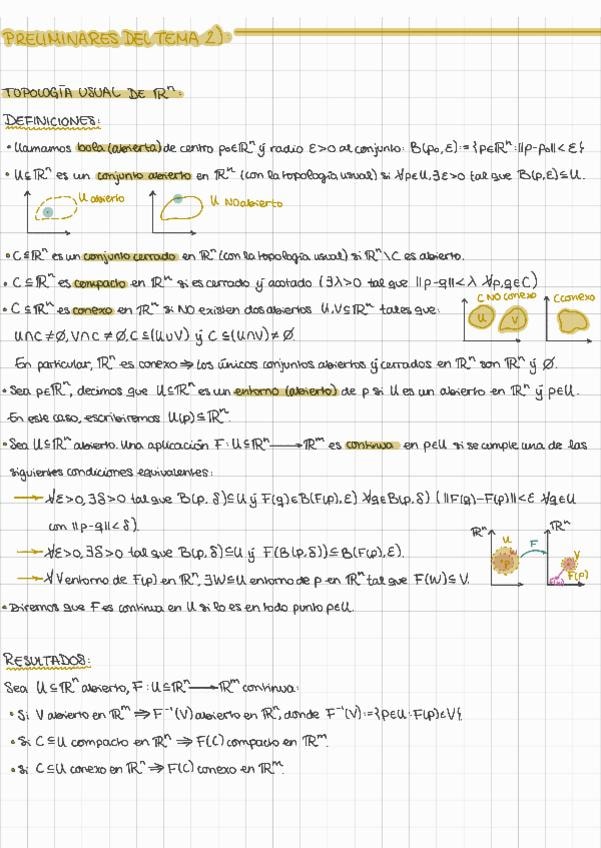 PRELIMINARES DEL TEMA 2)
TOPOLOGÍA USUAL DE ℝⁿ:
DEFINICIONES:
• Llamamos bola (abierta) de centro p₀∈ℝⁿ y radio ε>0 al conjunto: B(p₀,ε):={p∈ℝⁿ:||p-p₀||<ε}
• U⊆ℝⁿ es un conjunto abierto en ℝⁿ (con la topología usual) si ∀p∈U,∃ε>0 tal que B(p,ε)⊆U.
U abierto
U NO abierto
• C⊆ℝⁿ es un conjunto cerrado en ℝⁿ (con la topología usual) si ℝⁿ\C es abierto.
• C⊆ℝⁿ es compacto en ℝⁿ si es cerrado y acotado (∃λ>0 tal que ||p-q||<λ ∀p,q∈C)
• C⊆ℝⁿ es conexo en ℝⁿ si NO existen dos abiertos U,V⊆ℝⁿ tales que:
C NO conexo
C conexo
U
V
U∩C≠∅, V∩C≠∅, C⊆(U∪V) y C⊆(U∩V)≠∅.
En particular, ℝⁿ es conexo ⇒ los únicos conjuntos abiertos y cerrados en ℝⁿ son ℝⁿ y ∅.
• Sea p∈ℝⁿ, decimos que U⊆ℝⁿ es un entorno (abierto) de p si U es un abierto en ℝⁿ y p∈U.
En este caso, escribiremos U(p)⊆ℝⁿ.
• Sea U⊆ℝⁿ abierto. Una aplicación F:U⊆ℝⁿ⟶ℝᵐ es continua en p∈U si se cumple una de las
siguientes condiciones equivalentes:
→ ∀ε>0,∃δ>0 tal que B(p,δ)⊆U y F(q)∈B(F(p),ε) ∀q∈B(p,δ) (||F(q)-F(p)||<ε ∀q∈U
con ||p-q||<δ).
→ ∀ε>0,∃δ>0 tal que B(p,δ)⊆U y F(B(p,δ))⊆B(F(p),ε).
→ ∀V entorno de F(p) en ℝⁿ, ∃W⊆U entorno de p en ℝⁿ tal que F(W)⊆V.
ℝⁿ
U
p
F
ℝᵐ
V
F(p)
• Diremos que F es continua en U si lo es en todo punto p∈U.
RESULTADOS:
Sea U⊆ℝⁿ abierto, F:U⊆ℝⁿ⟶ℝᵐ continua:
• Si V abierto en ℝᵐ ⇒ F⁻¹(V) abierto en ℝⁿ, donde F⁻¹(V):={p∈U:F(p)∈V}
• Si C⊆U compacto en ℝⁿ ⇒ F(C) compacto en ℝᵐ.
• Si C⊆U conexo en ℝⁿ ⇒ F(C) conexo en ℝᵐ.